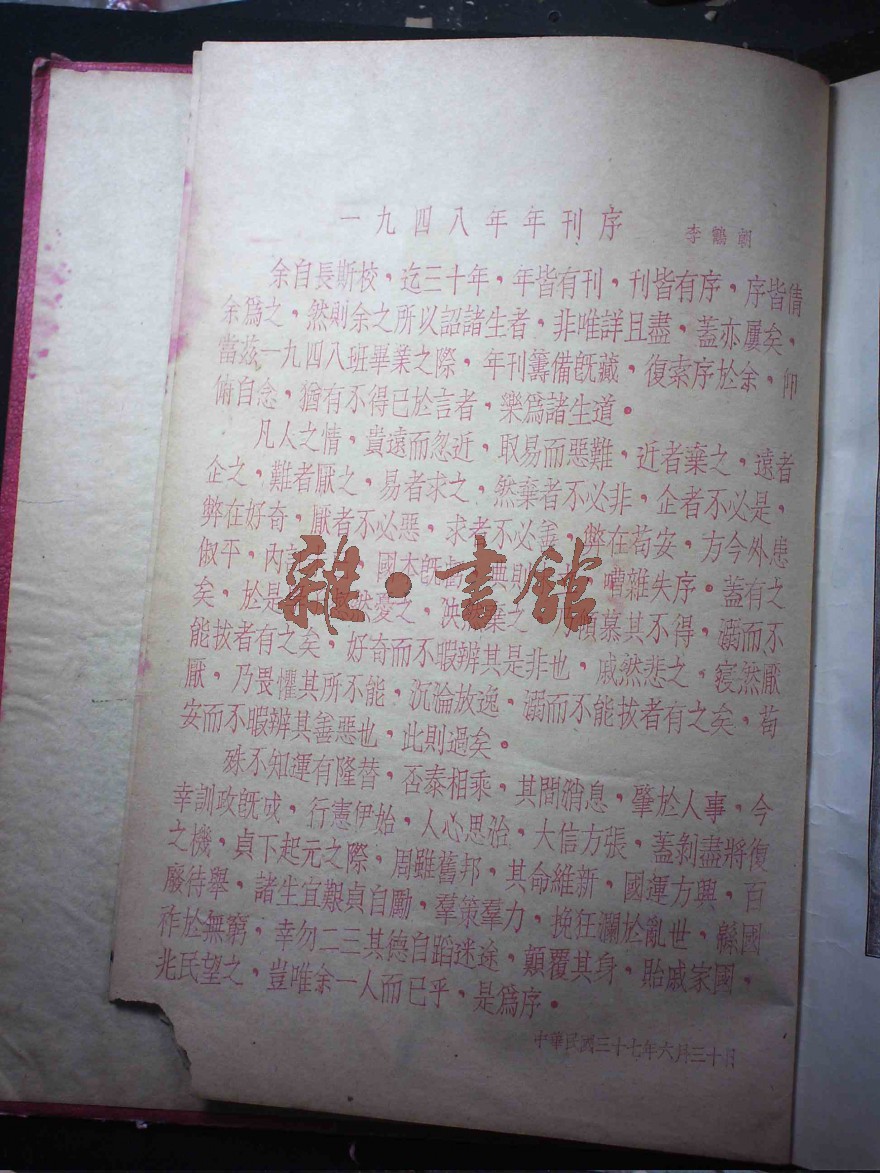 一九四八年年刊序
李鶴朝
余自長斯校，迄三十年，年皆有刊，刊皆有序，序皆倩
余爲之，然則余之所以詔諸生者，非唯詳且盡，蓋亦屢矣，
當茲一九四八班畢業之際，年刊籌備既蕆，復索序於余，仰
俯自念，猶有不得已於言者，樂爲諸生道。
凡人之情，貴遠而忽近，取易而惡難，近者棄之，遠者
企之，難者厭之，易者求之，然棄者不必非，企者不必是，
弊在好奇，厭者不必惡，求者不必善，弊在苟安，方今外患
俶平，內 國本既 無則 嘖雜失序。蓋有之
矣，於是 然愛之， 棄之 慕其不得，溺而不
能拔者有之矣，好奇而不暇辨其是非也，戚然悲之，寖然厭
厭，乃畏懼其所不能，沉淪放逸，溺而不能拔者有之矣，苟
安而不暇辨其善惡也，此則過矣。
殊不知運有隆替，否泰相乘，其間消息，肇於人事，今
幸訓政既成，行憲伊始，人心思治，大信方張，蓋剝盡將復
之機，貞下起元之際，周雖舊邦，其命維新，國運方興，百
廢待舉，諸生宜艱貞自勵，羣策羣力，挽狂瀾於亂世，緜國
祚於無窮，幸勿二三其德自蹈迷途，顛覆其身，貽戚家國，
兆民望之，豈唯余一人而已乎，是爲序。
中華民國三十七年六月三十日
雜·書館